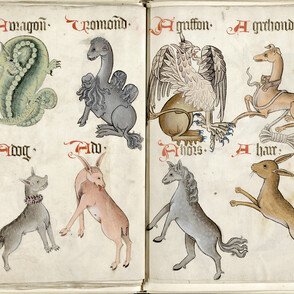 A dragon· Dromond· A griffon A grehond·
A dog· A do· A hors· A hair·